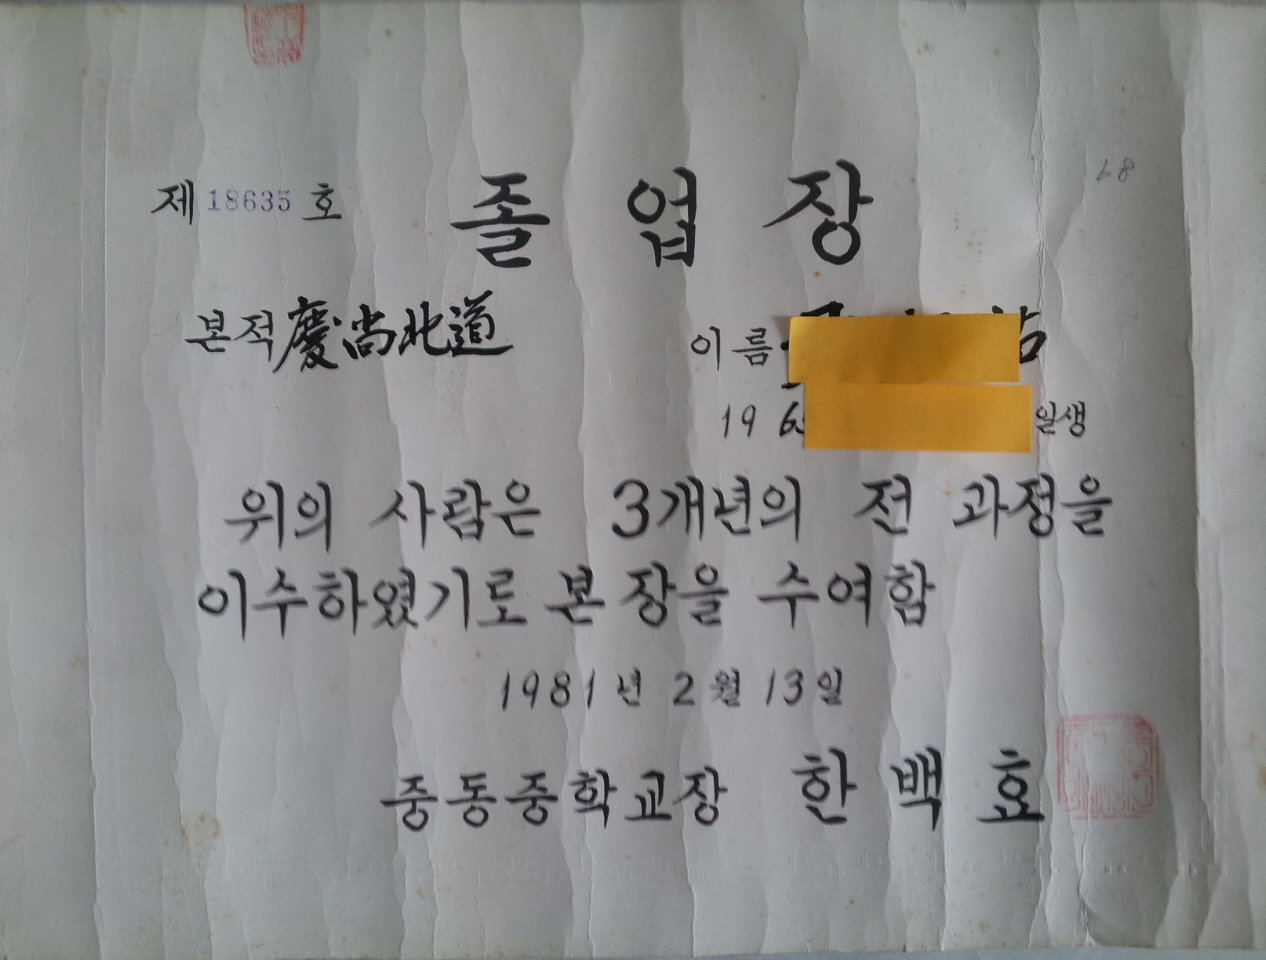 제 18635 호
졸업장
본적 慶尚北道
이름
196 일생
위의 사람은 3개년의 전 과정을
이수하였기로 본 장을 수여함
1981년 2월 13일
중동중학교장 한백효
68